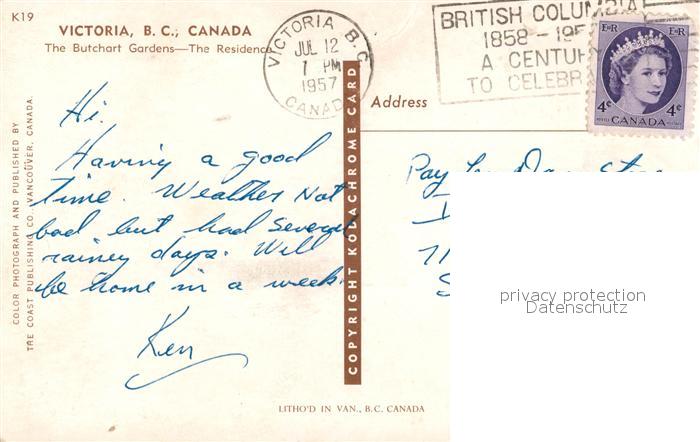 K19
VICTORIA, B. C., CANADA
The Butchart Gardens—The Residence
VICTORIA B.C.
JUL 12
7 PM
1957
CANADA
BRITISH COLUMBIA
1858 - 195
A CENTUR
TO CELEBR
E II R E II R
4¢ 4¢
CANADA
COLOR PHOTOGRAPH AND PUBLISHED BY
THE COAST PUBLISHING CO., VANCOUVER, CANADA.
Hi.
Having a good
time. Weather Not
bad but had several
rainey days. Will
be home in a week.
Ken
COPYRIGHT KODACHROME CARD
Address
Pay
privacy protection
Datenschutz
LITHO'D IN VAN., B.C. CANADA